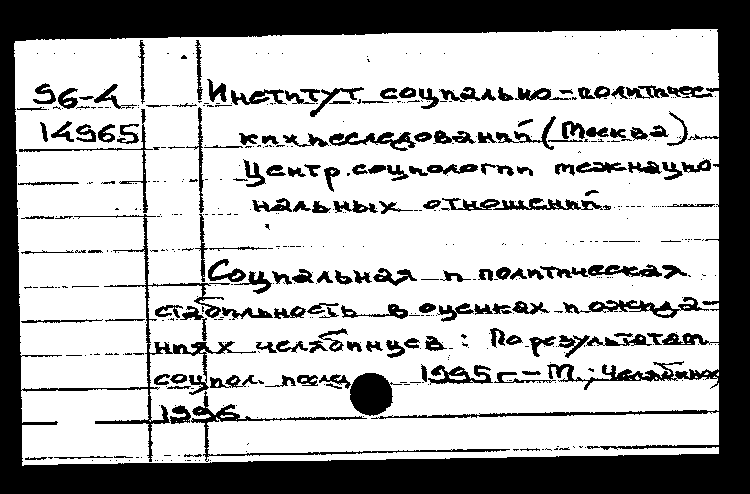 96-4 Институт социально-политичес-
14965 ких исследований (Москва).
Центр социологии межнацио-
нальных отношений.
Социальная и политическая
стабильность в оценках и ожида-
ниях челябинцев: По результатам
социол. исслед. 1995 г. - М.; Челябинск,
1996.